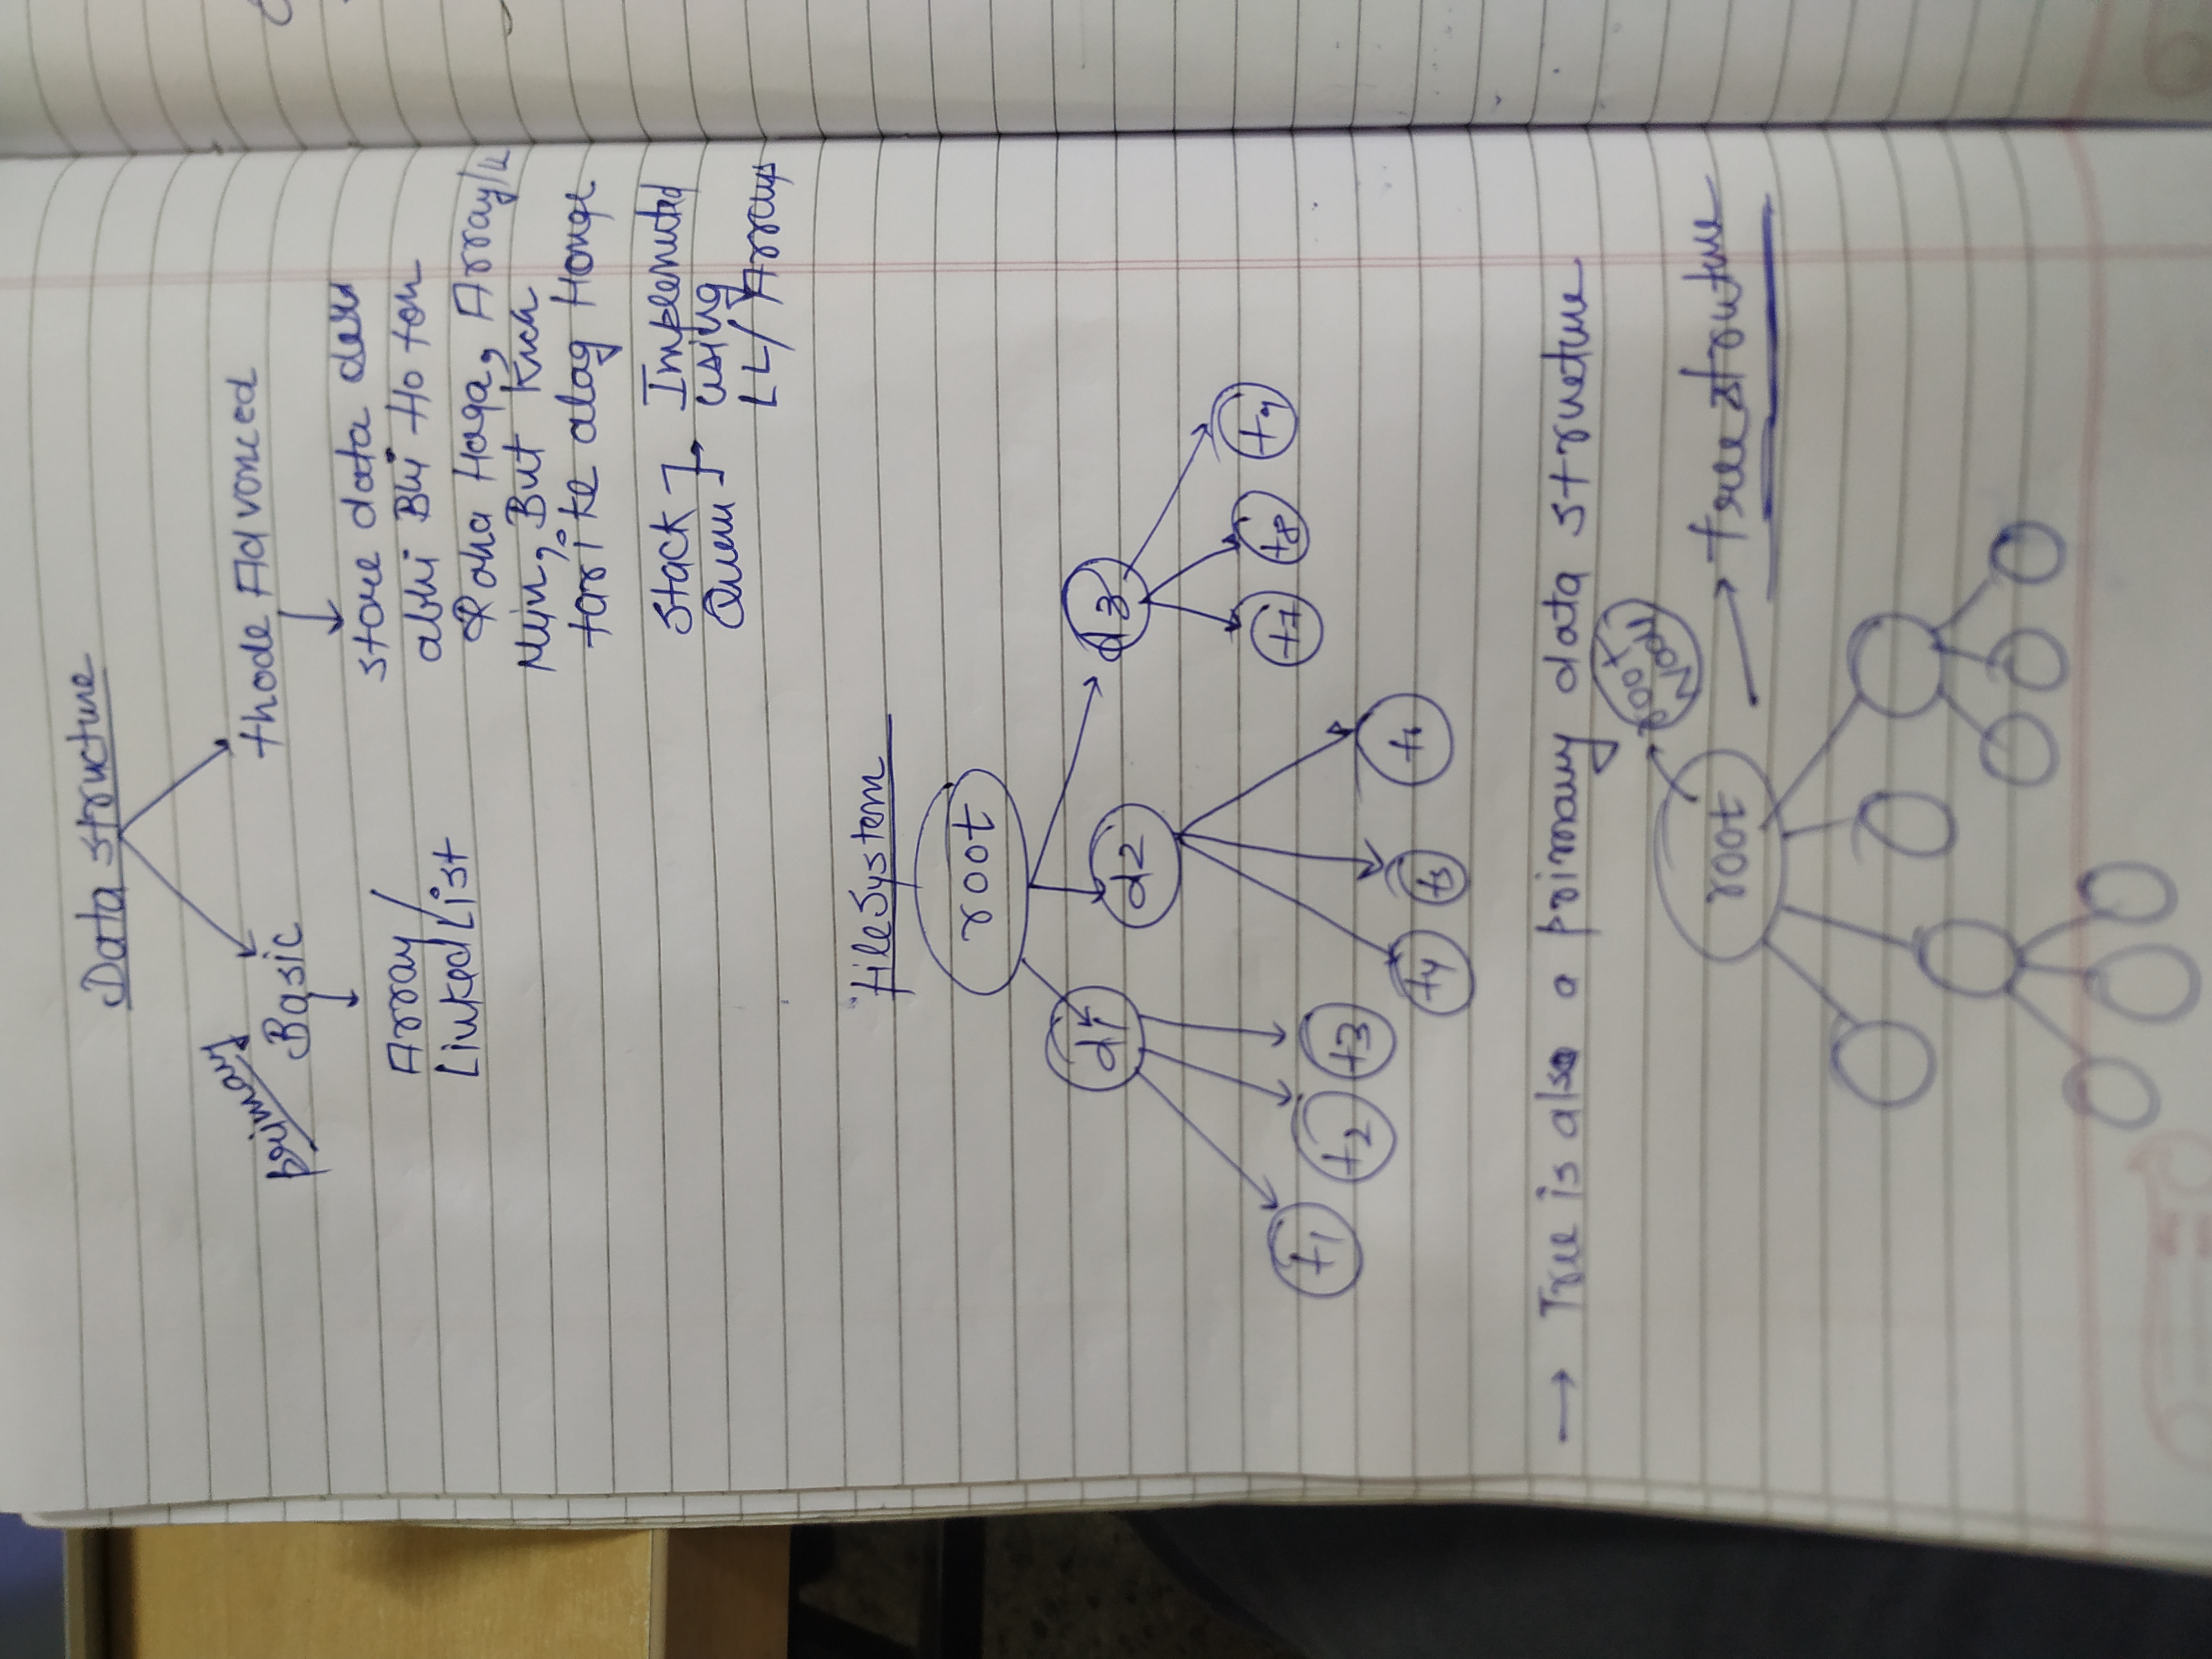 Data structure
primary
Basic
thode Advanced
Array /
Linked List
store data
abhi Bhi Ho toh
Raha Hoga, Array/LL
Mein, But Kuch
tarike alag Honge
Stack
Queue
Implemented
using
LL/ Arrays
file System
root
d1
d2
d3
f1
f2
f3
f4
f5
f6
f7
f8
f9
→ Tree is also a primary data structure
root
Node
root
→ tree struture